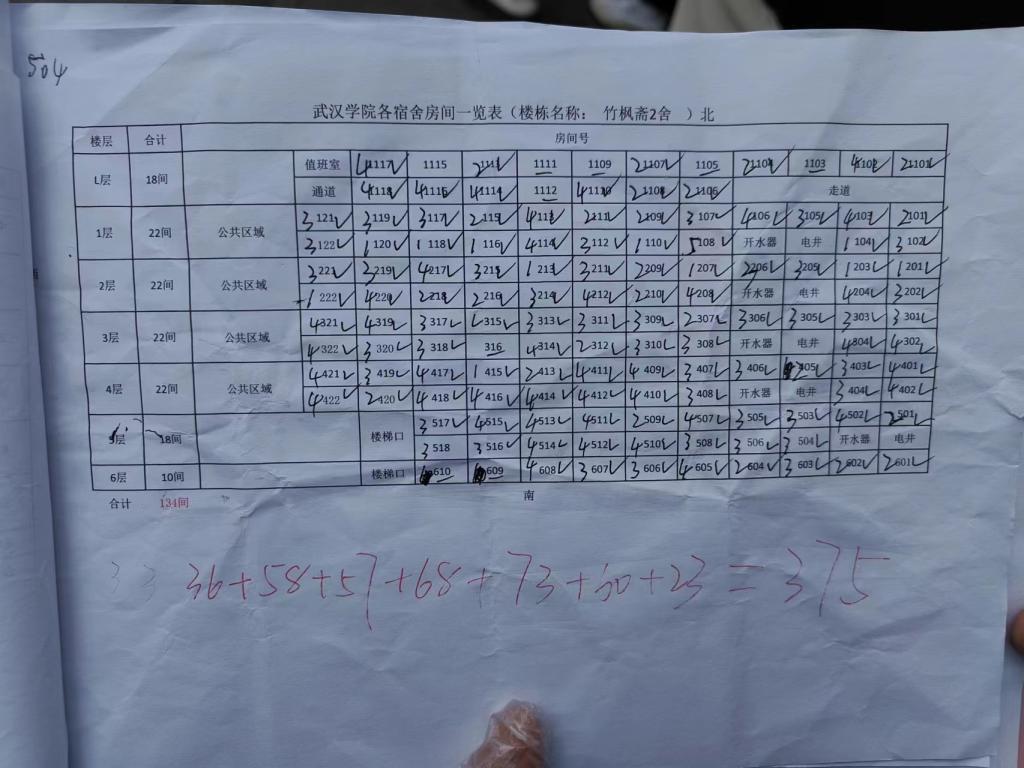 504
武汉学院各宿舍房间一览表（楼栋名称： 竹枫斋2舍 ）北
楼层 合计 房间号
L层 18间 值班室 4 1117√ 1115 2 111√ 1111 1109 2 1107√ 1105 2 1104 1103 4 1102 2 1101√
通道 4 1118√ 4 1116√ 4 1114√ 1112 4 1110√ 2 1108√ 2 1106√ 走道
1层 22间 公共区域 3 121√ 3 119√ 3 117√ 2 115√ 4 113√ 2 111√ 2 109√ 3 107√ 4 106√ 3 105√ 4 103√ 2 101√
3 122√ 1 120√ 1 118√ 1 116√ 4 114√ 3 112√ 1 110√ 5 108√ 开水器 电井 1 104√ 3 102√
2层 22间 公共区域 3 221√ 2 219√ 4 217√ 3 215√ 1 213√ 3 211√ 2 209√ 1 207√ 2 206√ 3 205√ 1 203√ 1 201√
1 222√ 4 220√ 2 218√ 2 216√ 3 214√ 4 212√ 2 210√ 4 208√ 开水器 电井 4 204√ 3 202√
3层 22间 公共区域 4 321√ 4 319√ 3 317√ 4 315√ 3 313√ 3 311√ 3 309√ 2 307√ 3 306√ 3 305√ 3 303√ 3 301√
4 322√ 3 320√ 3 318√ 316 4 314√ 2 312√ 3 310√ 3 308√ 开水器 电井 4 304√ 4 302√
4层 22间 公共区域 4 421√ 3 419√ 4 417√ 1 415√ 2 413√ 4 411√ 4 409√ 3 407√ 3 406√ 405√ 3 403√ 4 401√
4 422√ 2 420√ 4 418√ 4 416√ 4 414√ 4 412√ 4 410√ 3 408√ 开水器 电井 3 404√ 4 402√
5层 18间 楼梯口 3 517√ 4 515√ 4 513√ 4 511√ 2 509√ 4 507√ 3 505√ 3 503√ 4 502√ 2 501√
3 518 3 516√ 4 514√ 4 512√ 4 510√ 3 508√ 3 506√ 3 504√ 开水器 电井
6层 10间 楼梯口 610 609 4 608√ 3 607√ 3 606√ 4 605√ 2 604√ 3 603√ 2 602√ 2 601√
合计 134间 南
33 36+58+57+68+73+60+23=375